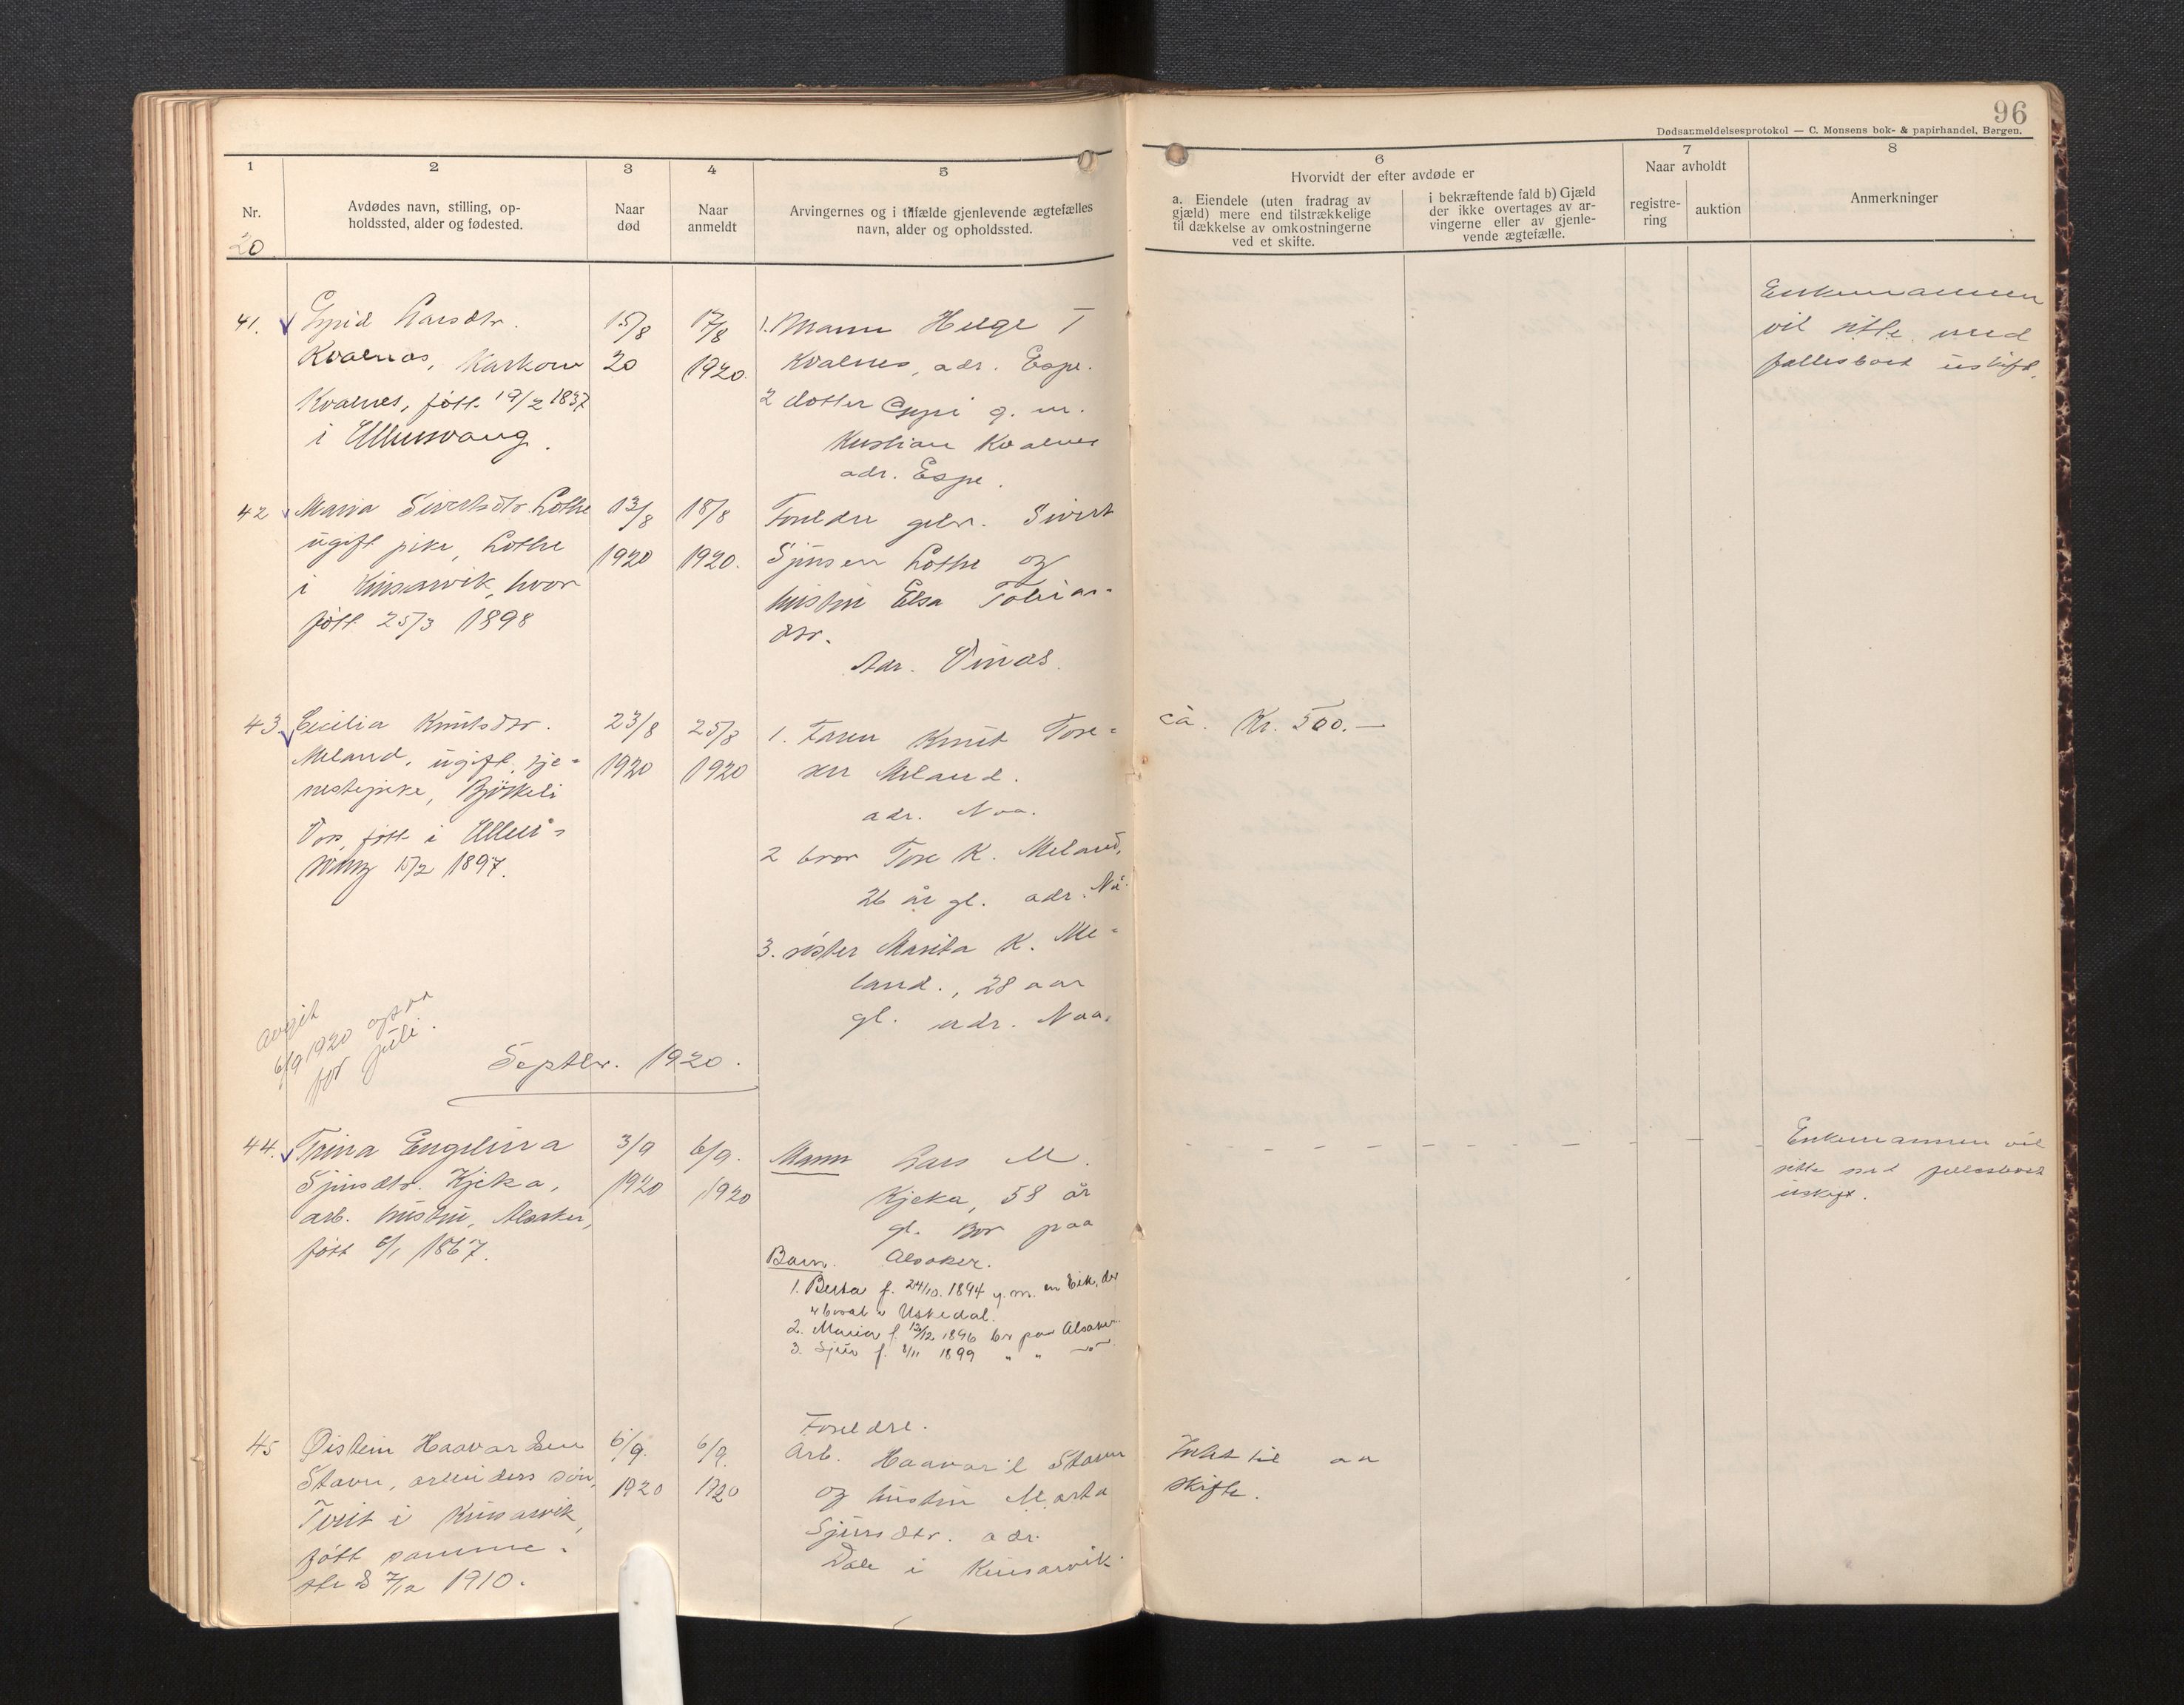 96
Dødsanmeldelsesprotokol — C. Monsens bok- & papirhandel, Bergen.
1
Nr.
20
2
Avdødes navn, stilling, op-
holdssted, alder og fødested.
3
Naar
død
4
Naar
anmeldt
5
Arvingernes og i tilfælde gjenlevende ægtefælles
navn, alder og opholdssted.
6
Hvorvidt der efter avdøde er
a. Eiendele (uten fradrag av
gjæld) mere end tilstrækkelige
til dækkelse av omkostningerne
ved et skifte.
i bekræftende fald b) Gjæld
der ikke overtages av ar-
vingerne eller av gjenle-
vende ægtefælle.
7
Naar avholdt
registre-
ring
auktion
8
Anmerkninger
41.
Larsdtr.
Kvalnes, 
Kvalnes, født 19/2 1837
i Ullensvang.
15/8
20
17/8
1920.
1. Mann Helge T
Kvalnes, adr. Espe.
2 dotter g. m.
Kristian Kvalnes
adr. Espe.
Enkemannen
vil sitte med
fællesboet uskift.
42
Maria Sivertsdtr. Lothe
ugift pike, Lothe
i Kinsarvik, hvor
født 25/3 1898
13/8
1920
18/8
1920.
Foreldre gbr. Sivert
Sjursen Lothe og
hustru Elsa Tobias-
dtr.
Adr. Vinæs.
43
Cecilia Knutsdtr.
Meland, ugift, tje-
nestepike, 
Vos, født i Ullens-
vang 15/2 1897.
23/8
1920
25/8
1920
1. Faren Knut Tore-
sen Meland.
adr. Naa.
2 bror Tore K. Meland,
26 år gl. adr. Nå.
3. sister Marita K. Me-
land., 28 aar
gl. adr. Naa.
ca. Kr. 500.—
Avgit
6/9 1920 opgave
for juli.
Septbr. 1920.
44.
Trina Engelina
Sjursdtr. Kjeka,
arb. hustru, Alsaker,
født 6/1 1867.
3/9
1920
6/9.
1920
Mann Lars M.
Kjeka, 58 år
gl. Bor paa
Alsaker.
Barn.
1. Berta f. 24/10. 1894 g. m. en Eik, der
Uskedal.
2. Maria f. 12/12 1896 br paa Alsaker.
3. Sjur f. 8/11 1899 " "
Enkemannen vil
sitte med fellesboet
uskift.
45
Øistein Haavardsen
Stavn, arbeiders søn,
Tveit i Kinsarvik,
født samme-
steds 7/12 1910.
6/9.
1920
6/9.
1920
Foreldre.
Arb. Haavard Stavn
og hustru Marta
Sjursdtr. adr.
Dale i Kinsarvik.
Intet til aa
skifte.